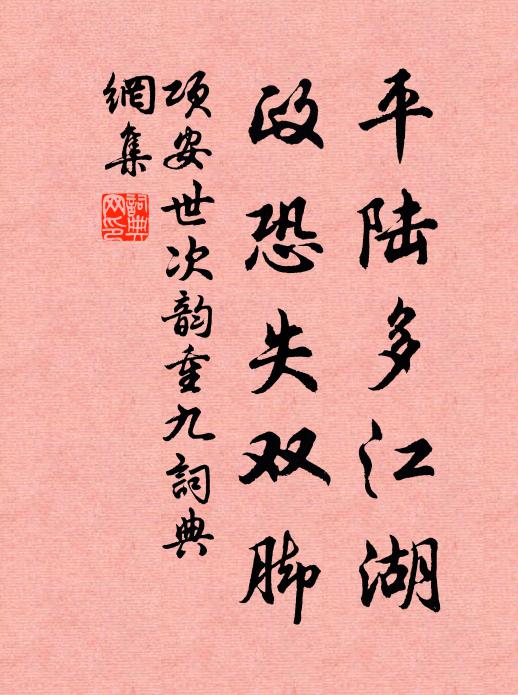 平陆多江湖
政恐失双脚
项安世次韵重九詞典
網集
詞典网印